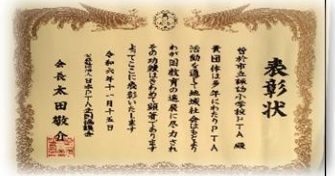 表彰状
曽於市立諏訪小学校PTA 殿
貴団体は多年にわたりPTA
活動を通して地域社会はもとより
わが国教育の進展に尽力され
その功績はきわめて顕著であります
よってここに表彰いたします
令和六年十一月十五日
公益社団法人日本PTA全国協議会
会長 太田敬介